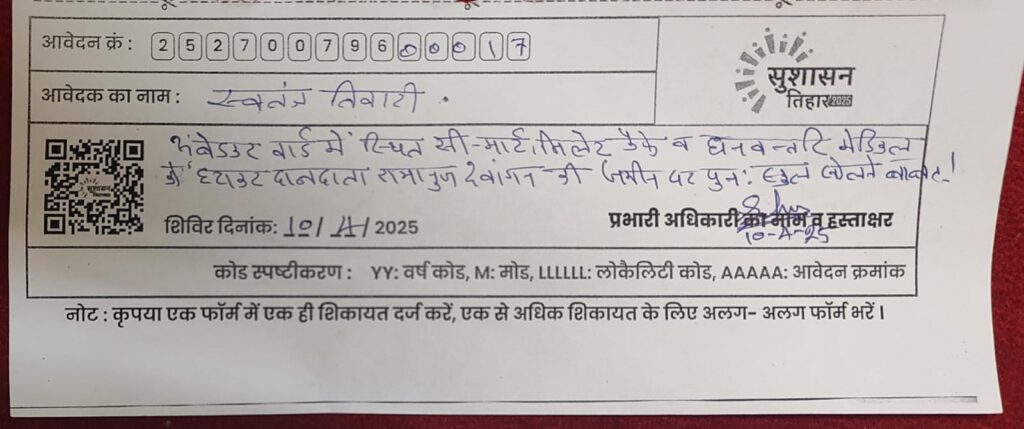 आवेदन क्रं : 25270079600017
सुशासन
तिहार 2025
आवेदक का नाम : स्वतंत्र तिवारी .
अंबेडकर वार्ड में स्थित सी-मार्ट, मिलेट कैफे व धनवन्तरि मेडिकल
को हटाकर दानदाता रामानुज देवांगन की जमीन पर पुनः स्कुल खोलने बाबत.!
शिविर दिनांक: 10/4/2025
प्रभारी अधिकारी का नाम व हस्ताक्षर
10-4-25
कोड स्पष्टीकरण : YY: वर्ष कोड, M: मोड, LLLLLL: लोकैलिटी कोड, AAAAA: आवेदन क्रमांक
नोट : कृपया एक फॉर्म में एक ही शिकायत दर्ज करें, एक से अधिक शिकायत के लिए अलग- अलग फॉर्म भरें ।